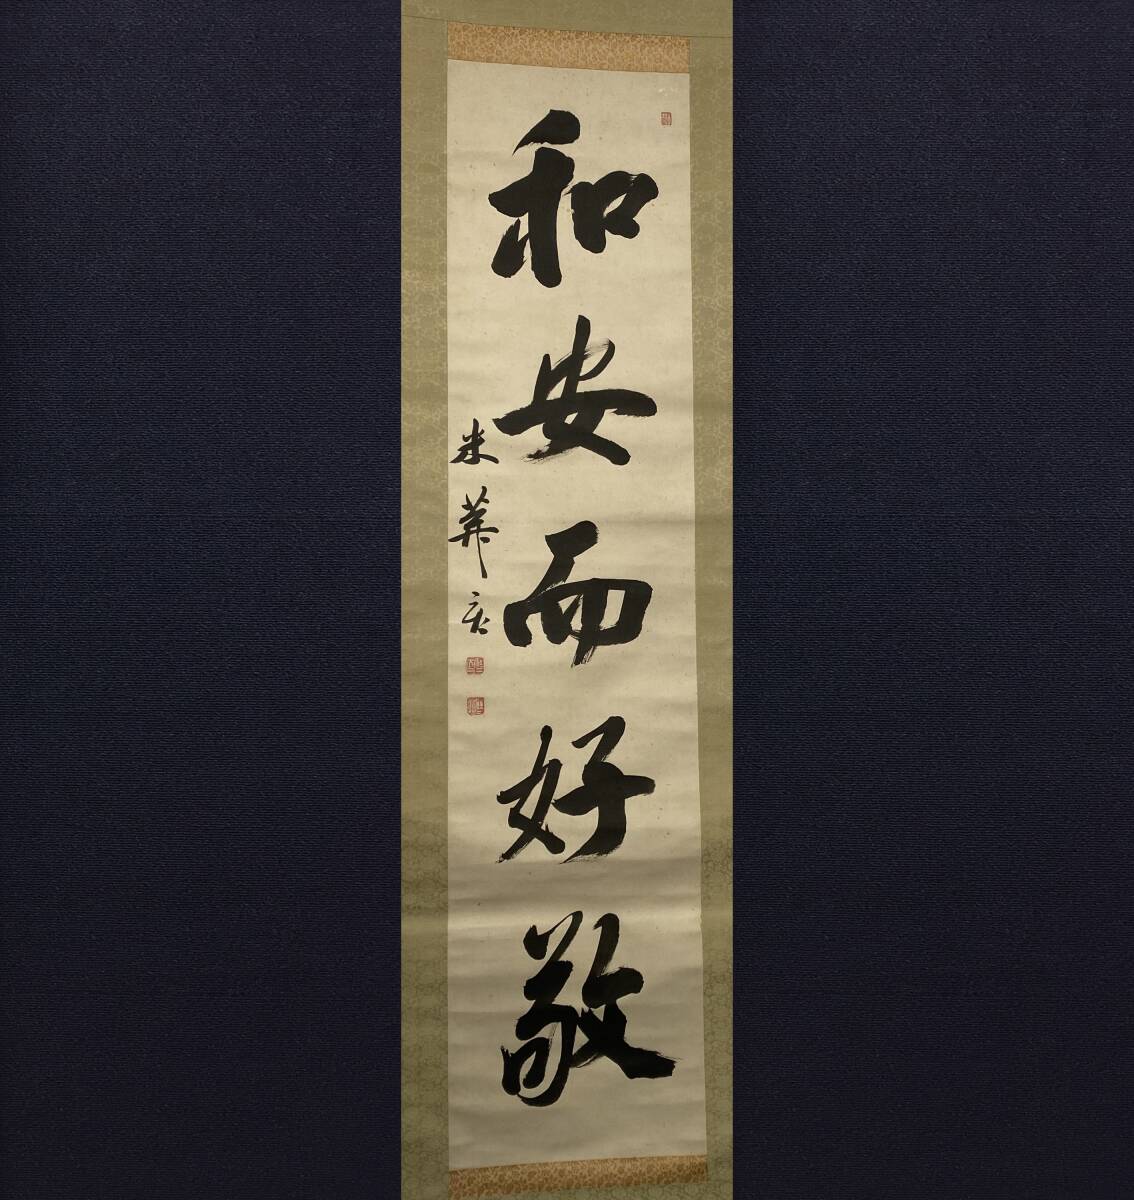 和安而好敬
米華亥